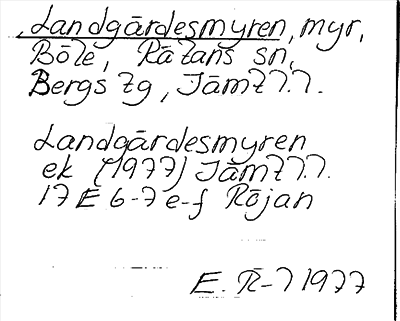 Landgårdesmyren, myr,
Böle, Rätans sn,
Bergs tg, Jämtl.
Landgårdesmyren
ek (1977) Jämtl.
17 E 6-7 e-f Röjan
1977